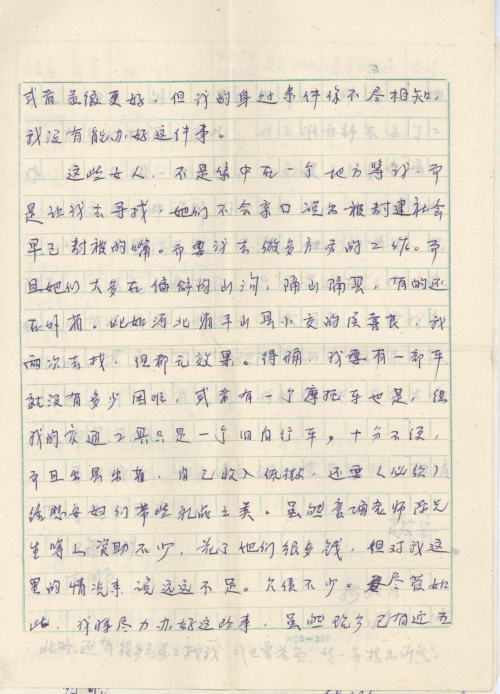 或者直微更好，但我的身边条件你不尽相知
我没有能力办好这件事。
这些女人，不是集中在一个地方等我 而
是让我去寻找，她们不会亲口说出被封建社会
早已封被的嘴。而要我去做多方方的工作。而
且她们大多在偏僻的山沟，隔山隔县，有的还
在外省，比如河北省平山县小交的侯喜良，我
两次去找，但都无效果。得确，我要有一部车
就没有多少困难，或者有一个摩托车也是，但
我的交通工具只是一个旧自行车。十分不便，
而且出县出省，自己收入低微，还要（必须）
给慰安妇们带些礼品之类。虽然 老师陈先
生等人资助不少，花了他们很多钱，但对我这
里的情况来说远远不足。欠债不少。尽管如
此，我将尽力办好这些事，虽然现今已有近五
此外还有很多 找我 我也要
20×15=300